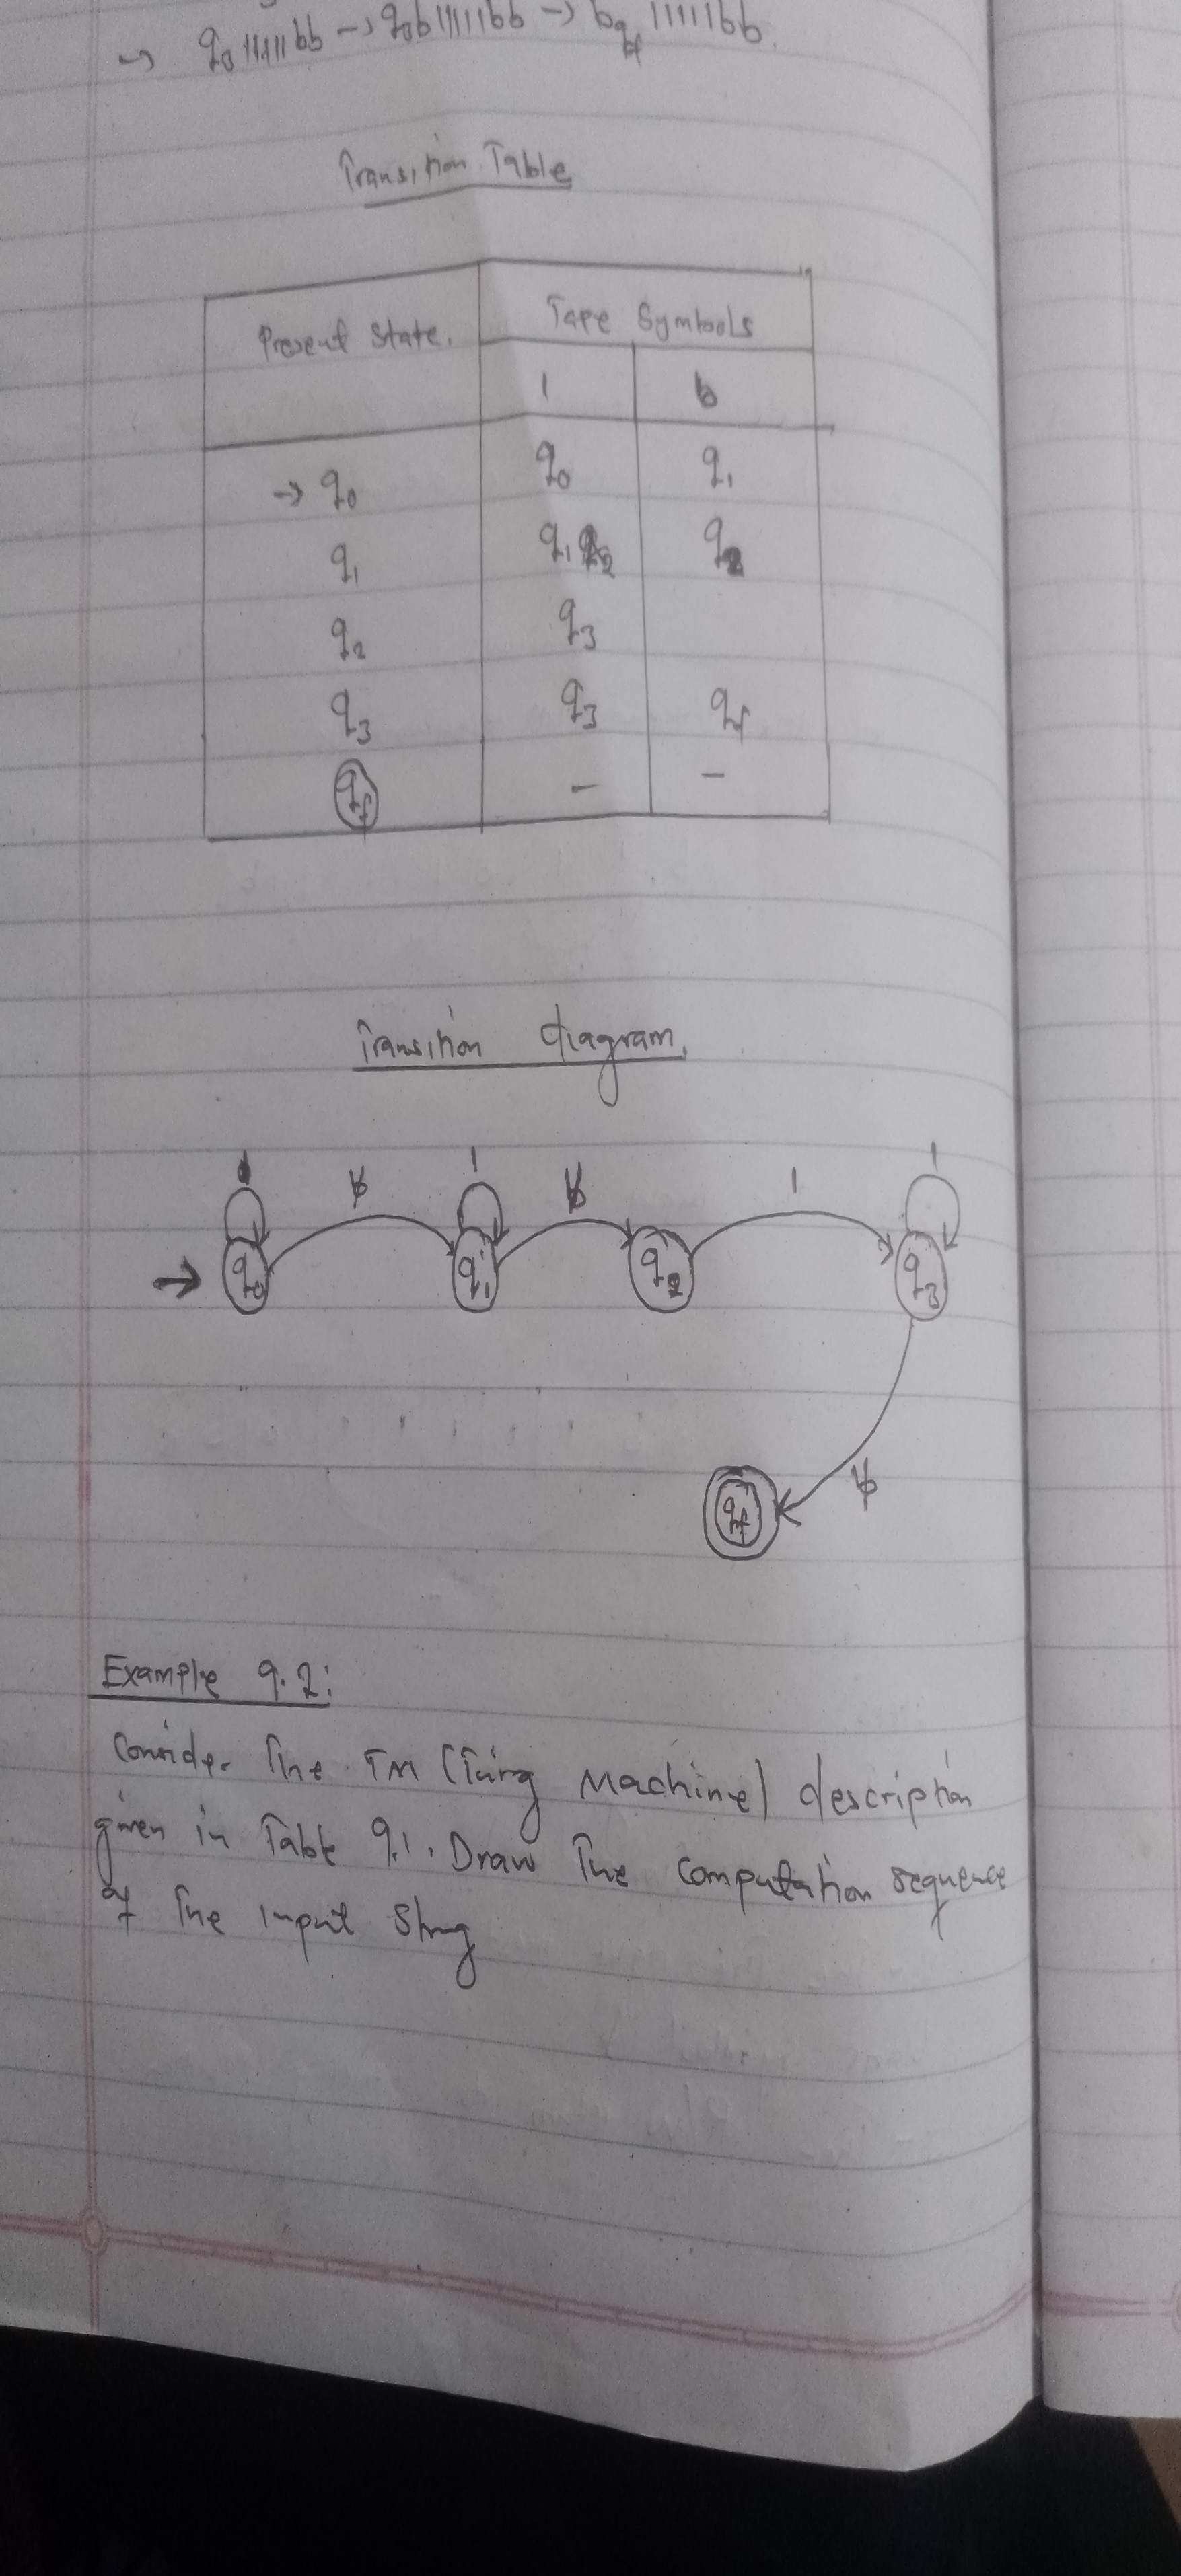 → q₀111111bb → q₃b111111bb → bq_f 111111bb.
Transition Table
Present State. Tape Symbols
1 b
→ q₀ q₀ q₁
q₁ q₁ q₂
q₂ q₃
q₃ q₃ q_f
q_f – –
Transition diagram.
ƀ 1 ƀ 1 1
→ q₀ q₁ q₂ q₃
q_f ƀ
Example 9.2:
Consider The TM (Turing Machine) description
given in Table 9.1. Draw The Computation sequence
of The input String